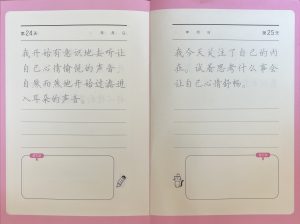 第24天
年 月 日
我开始有意识地去听让
自己心情愉悦的声音，
自然而然地开始过滤进
入耳朵的声音。
年 月 日
第25天
我今天关注了自己的内
在。试着思考什么事会
让自己心情舒畅。